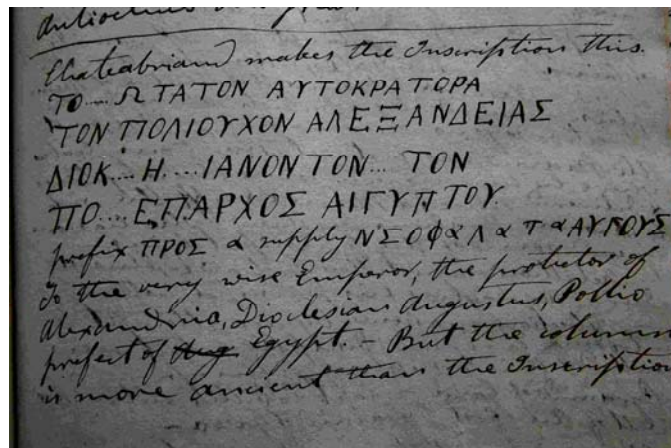 Antiochus
Chateabriand makes the Inscription this.
ΤΟ....ΩΤΑΤΟΝ ΑΥΤΟΚΡΑΤΟΡΑ
ΤΟΝ ΠΟΛΙΟΥΧΟΝ ΑΛΕΞΑΝΔΕΙΑΣ
ΔΙΟΚ....Η....ΙΑΝΟΝ ΤΟΝ... ΤΟΝ
ΠΟ....ΕΠΑΡΧΟΣ ΑΙΓΥΠΤΟΥ.
prefix ΠΡΟΣ & supply ΝΣΟΦαΛαΤαΑΥΓΟΥΣ
To the very wise Emperor, the protector of
Alexandria, Dioclesian Augustus, Pollio
prefect of Egypt. - But the column
is more ancient than the Inscription